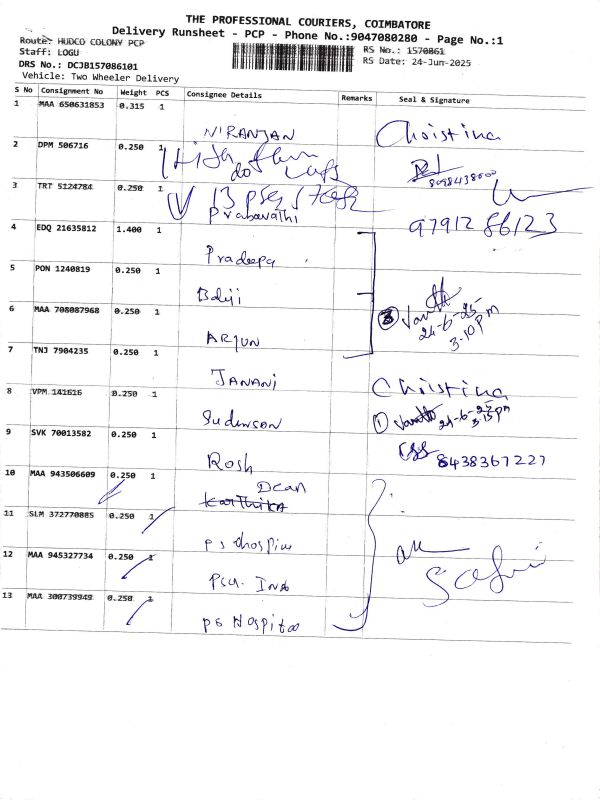 THE PROFESSIONAL COURIERS, COIMBATORE
Delivery Runsheet - PCP - Phone No.:9047080280 - Page No.:1
Route: HUDCO COLONY PCP
RS No.: 1570861
Staff: LOGU
RS Date: 24-Jun-2025
DRS No.: DCJB157086101
Vehicle: Two Wheeler Delivery
S No Consignment No Weight PCS Consignee Details Remarks Seal & Signature
1 MAA 650631853 0.315 1
NIRANJAN Christina
2 DPM 506716 0.250 1
do
8098438000
3 TRT 5124784 0.250 1
Prabavathi 9791286123
4 EDQ 21635812 1.400 1
Pradeepa
5 PON 1240819 0.250 1
Balaji
6 MAA 708087968 0.250 1
24-6-25
3.10pm
ARJUN
7 TNJ 7904235 0.250 1
JANANI Christina
8 VPM 141616 0.250 1
Sudenson 1 24-6-25
3.15pm
9 SVK 70013582 0.250 1
Rosh 8438367227
10 MAA 943506609 0.250 1
Dean
Karthika
11 SLM 372770885 0.250 1
12 MAA 945327734 0.250 1
13 MAA 300739949 0.250 1
PS Hospital